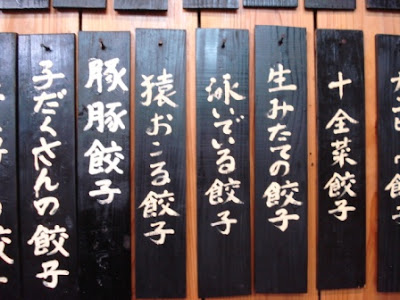 十全菜餃子
生みたての餃子
泳いでいる餃子
猿おこる餃子
豚豚餃子
子だくさんの餃子